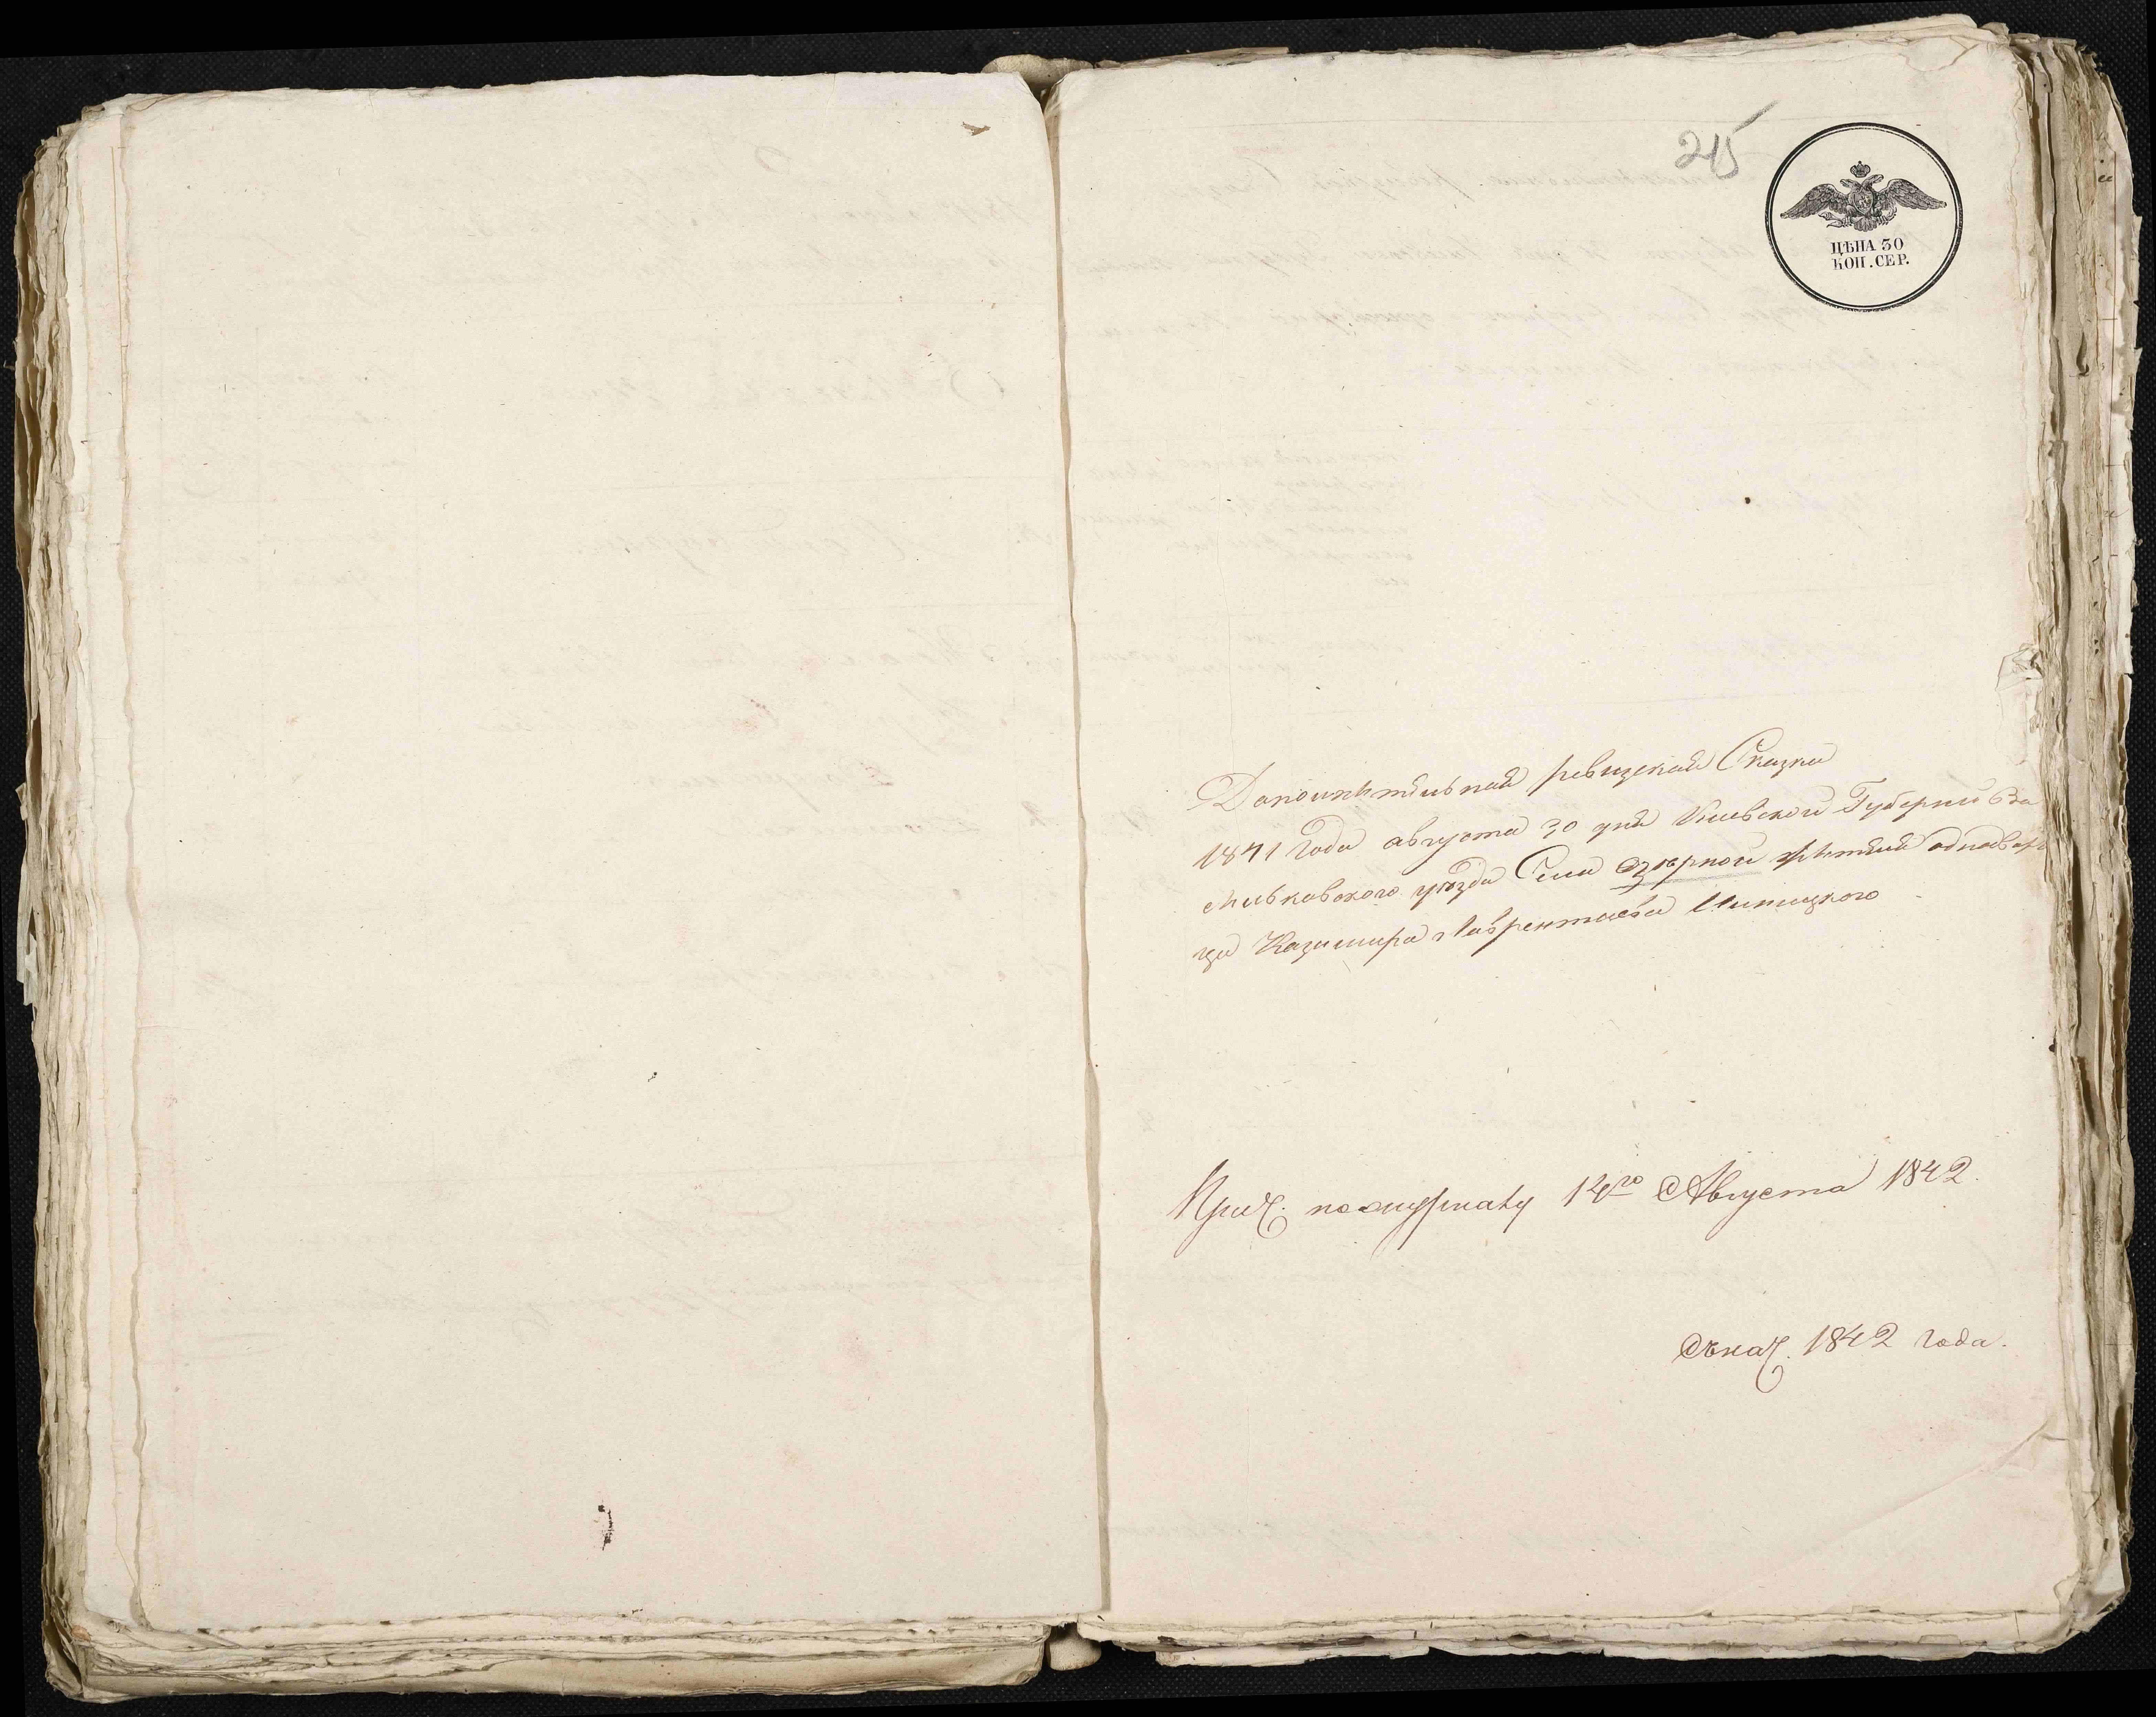 215
ЦѢНА 30
КОП. СЕР.
Дополнительная ревизская Сказка
1841 года августа 30 дня Киевской Губернии Ва
сильковского уѣзда Села Озѣрной жителя однодвор
ца Казимира Лаврентьева
Прич. по журналу 14го Августа 1842.
Съ нач. 1842 года.